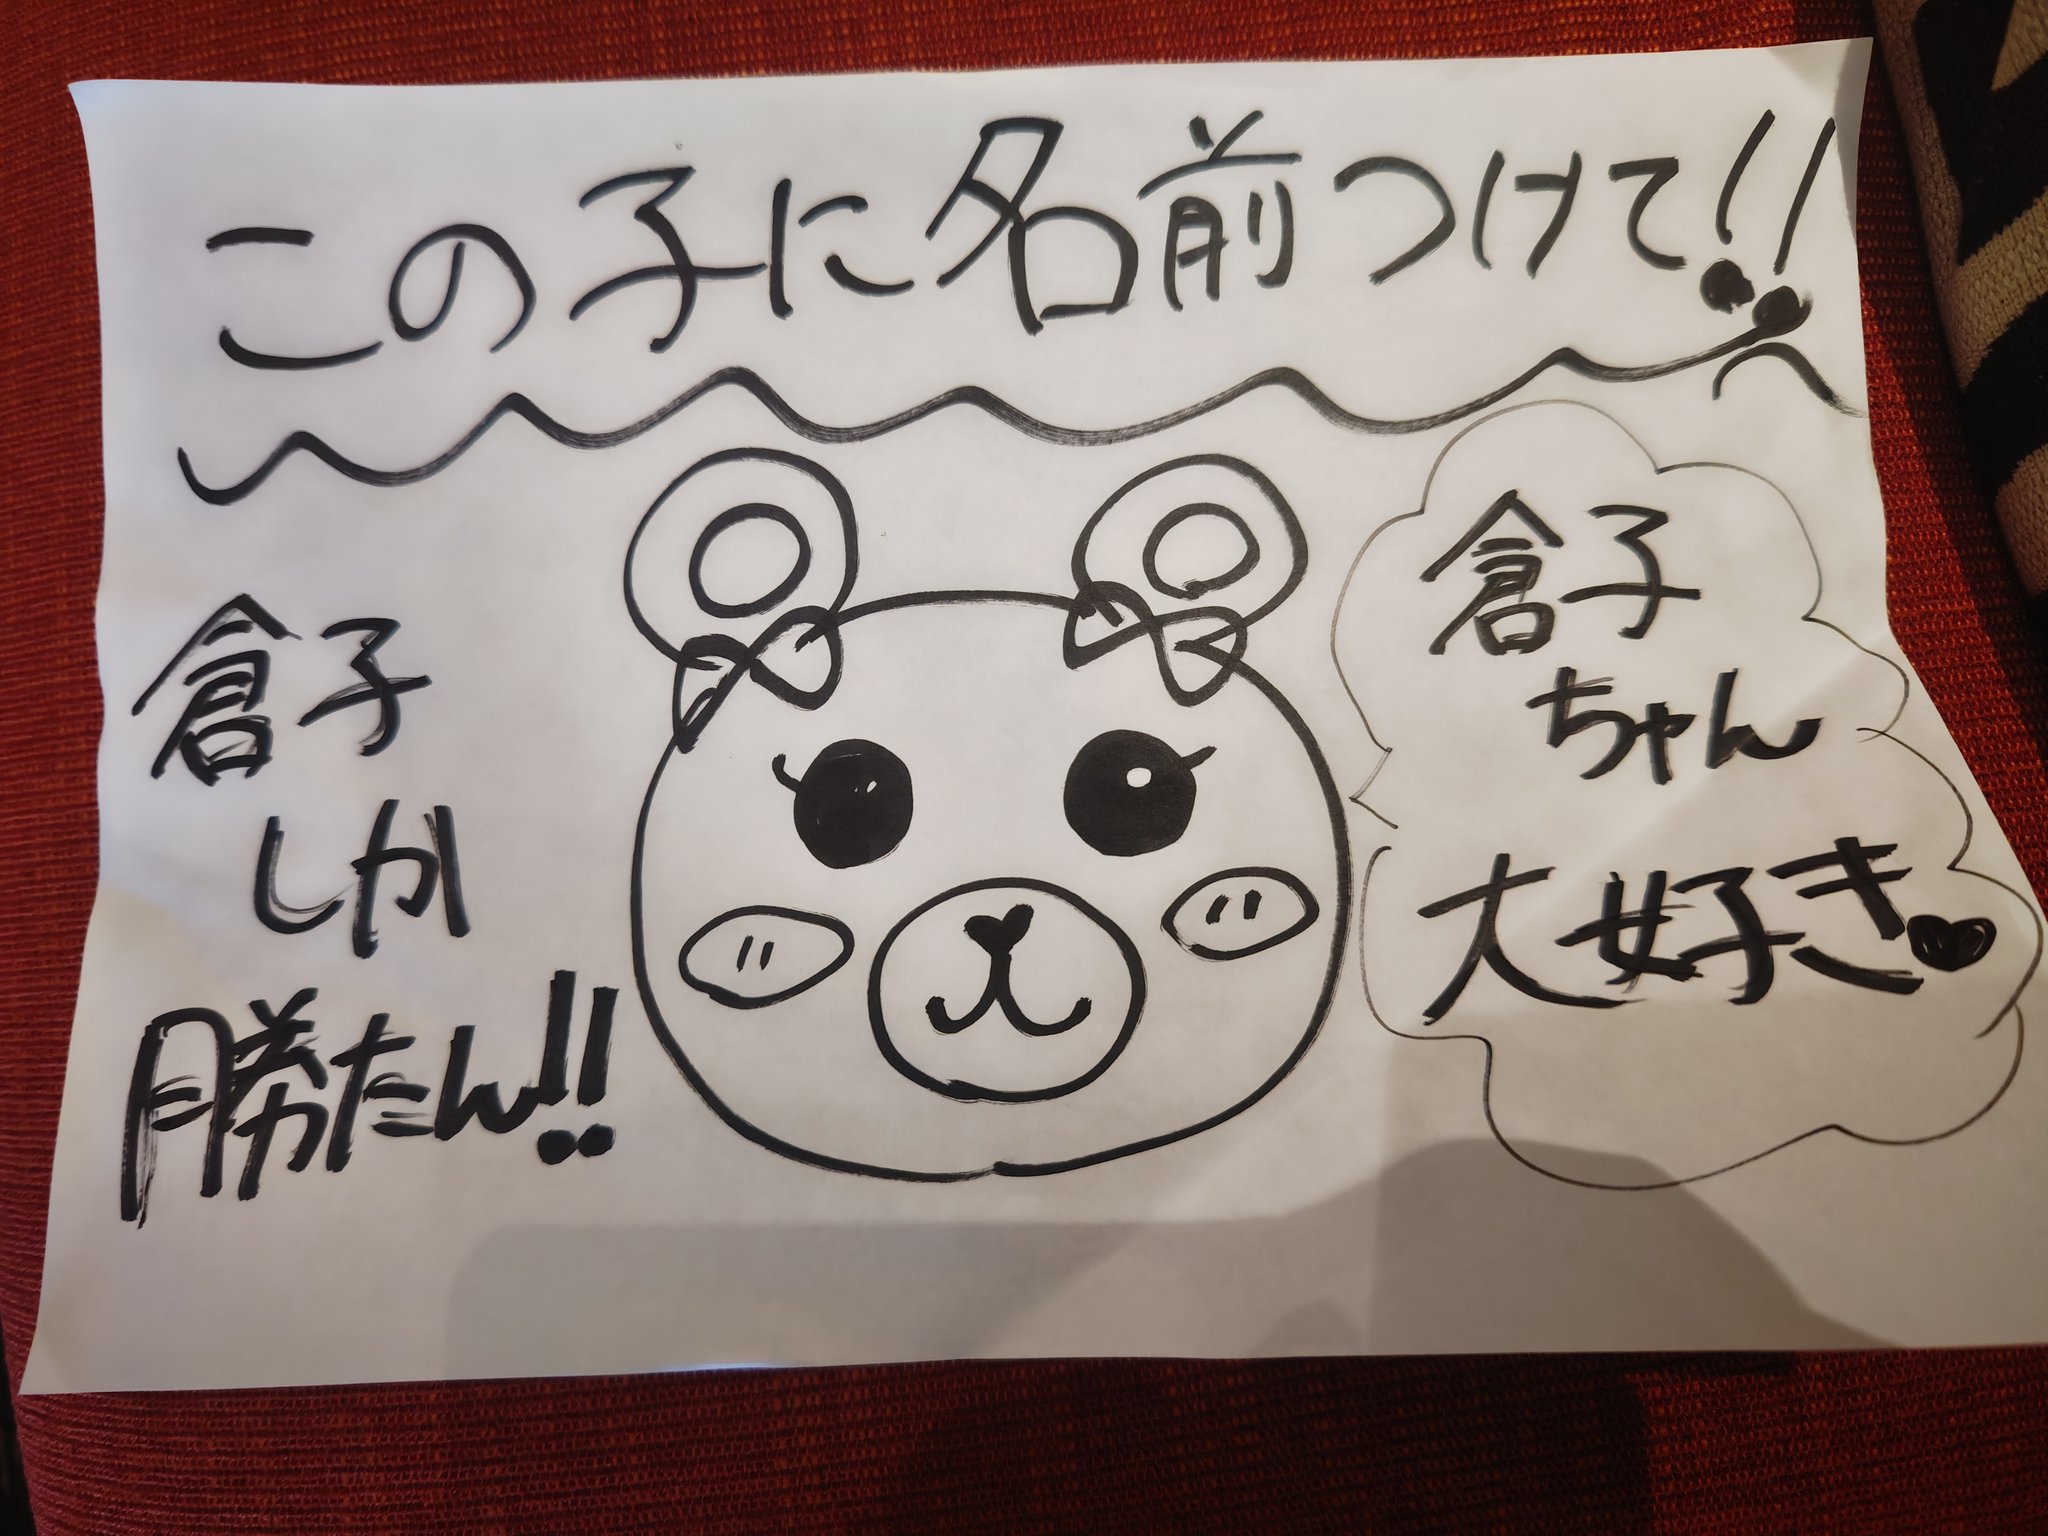 この子に名前つけて!!
倉子
しか
勝たん!!
倉子
ちゃん
大好き♥